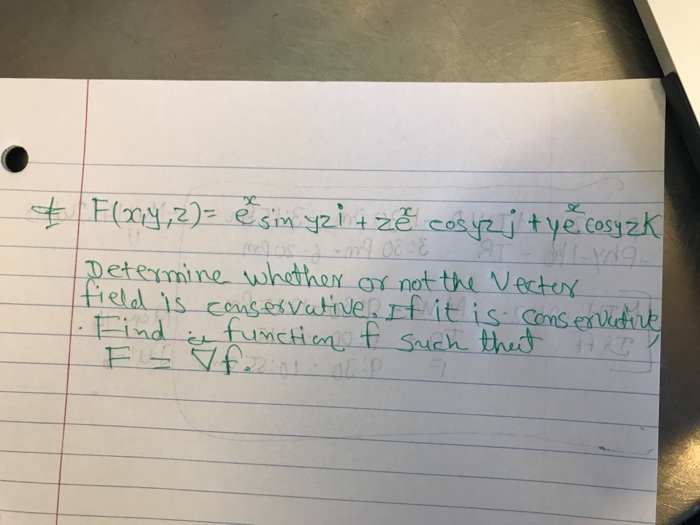 # F(x,y,z) = e^x sin yz i + ze^x cosyz j + ye^x. cosyzK
Determine whether or not the Vector
field is conservative. If it is conservative,
. Find a function f such that
F = ∇f.